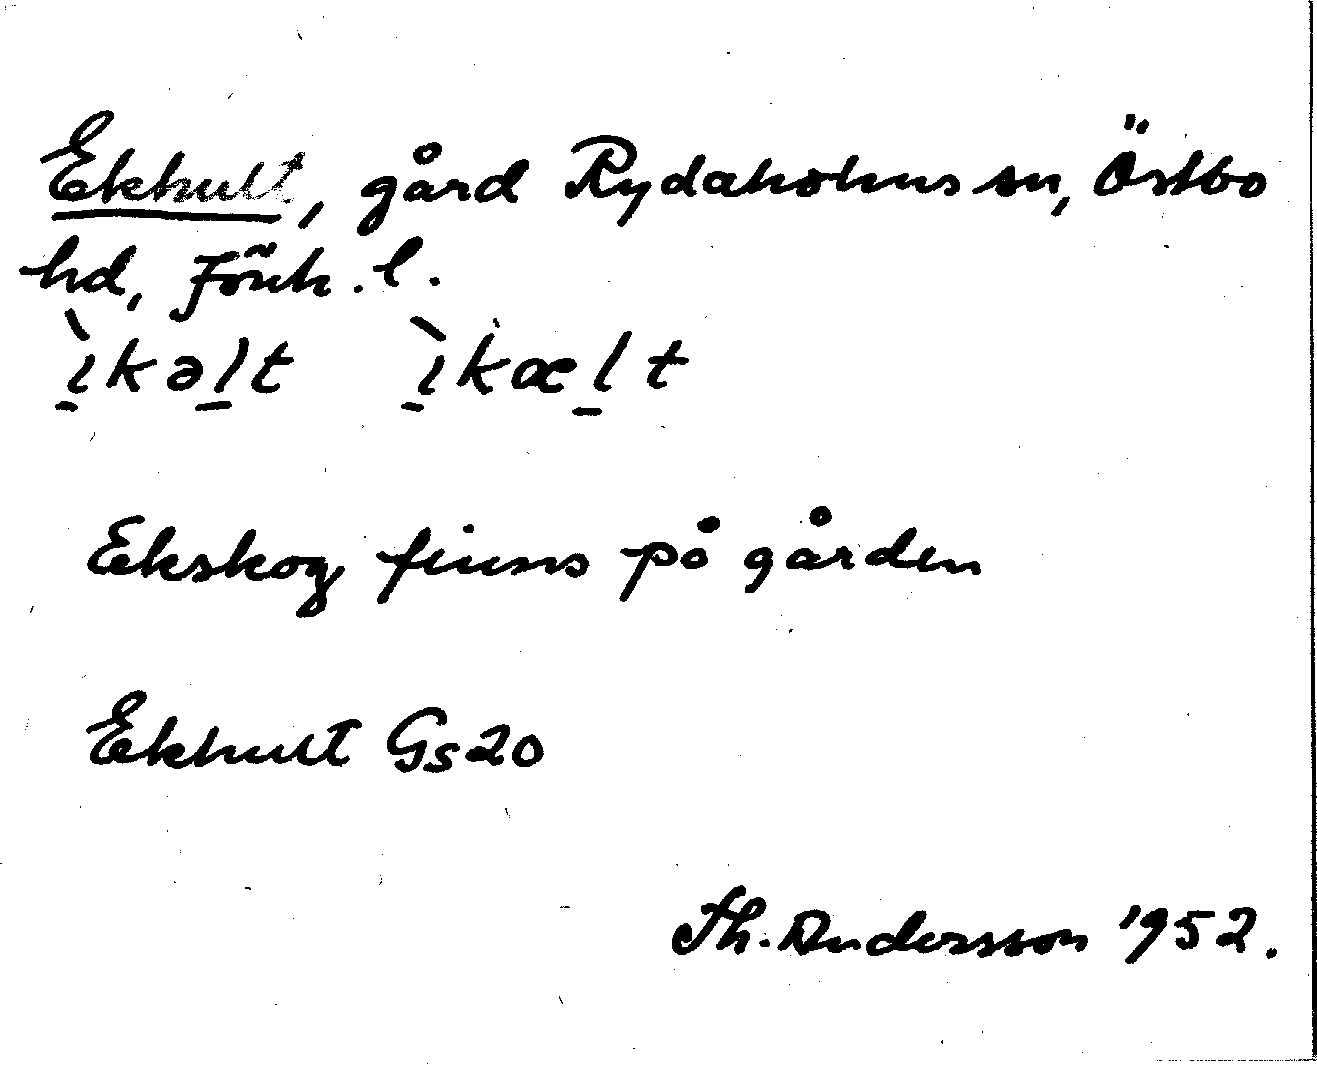 Ekhult, gård Rydaholms sn, Östbo
hd, Jönk. l.
ı̱̀kəḻt ı̱̀kæḻt
Ekskog finns på gården
Ekhult Gs20
Th. Andersson 1952.